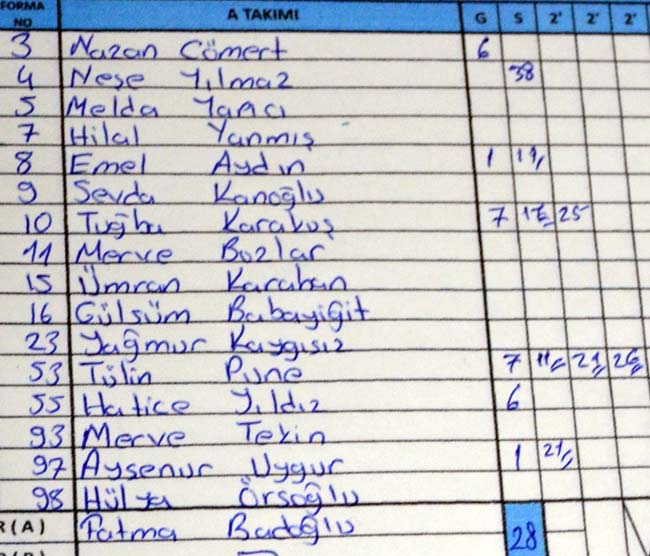 FORMA NO A TAKIMI G S 2' 2' 2'
3 Nazan Cömert 6
4 Neşe Yılmaz 38
5 Melda
7 Hilal Yanmış
8 Emel Aydın 1
9 Sevda Kanoğlu
10 Tuğba Karakuş 7 25
11 Merve Bozlar
15 Ümran Karahan
16 Gülsüm Babayiğit
23 Yağmur Kaygısız
53 Tülin Pune 7
55 Hatice Yıldız 6
93 Merve Tekin
97 Aysenur Uygur 1
98 Hülya
R(A) Fatma 28